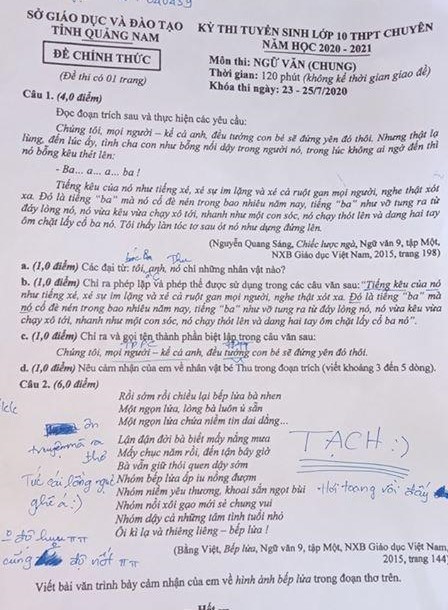 SỞ GIÁO DỤC VÀ ĐÀO TẠO
TỈNH QUẢNG NAM
ĐỀ CHÍNH THỨC
(Đề thi có 01 trang)
KỲ THI TUYỂN SINH LỚP 10 THPT CHUYÊN
NĂM HỌC 2020 - 2021
Môn thi: NGỮ VĂN (CHUNG)
Thời gian: 120 phút (không kể thời gian giao đề)
Khóa thi ngày: 23 - 25/7/2020
Câu 1. (4,0 điểm)
Đọc đoạn trích sau và thực hiện các yêu cầu:
Chúng tôi, mọi người – kể cả anh, đều tưởng con bé sẽ đứng yên đó thôi. Nhưng thật lạ
lùng, đến lúc ấy, tình cha con như bỗng nổi dậy trong người nó, trong lúc không ai ngờ đến thì
nó bỗng kêu thét lên:
- Ba... a... a... ba !
Tiếng kêu của nó như tiếng xé, xé sự im lặng và xé cả ruột gan mọi người, nghe thật xót
xa. Đó là tiếng “ba” mà nó cố đè nén trong bao nhiêu năm nay, tiếng “ba” như vỡ tung ra từ
đáy lòng nó, nó vừa kêu vừa chạy xô tới, nhanh như một con sóc, nó chạy thót lên và dang hai tay
ôm chặt lấy cổ ba nó. Tôi thấy làn tóc tơ sau ót nó như dựng đứng lên.
(Nguyễn Quang Sáng, Chiếc lược ngà, Ngữ văn 9, tập Một,
NXB Giáo dục Việt Nam, 2015, trang 198)
bác Ba Thu
a. (1,0 điểm) Các đại từ: tôi, anh, nó chỉ những nhân vật nào?
b. (1,0 điểm) Chỉ ra phép lặp và phép thế được sử dụng trong các câu văn sau: “Tiếng kêu của nó
như tiếng xé, xé sự im lặng và xé cả ruột gan mọi người, nghe thật xót xa. Đó là tiếng “ba” mà
nó cố đè nén trong bao nhiêu năm nay, tiếng “ba” như vỡ tung ra từ đáy lòng nó, nó vừa kêu vừa
chạy xô tới, nhanh như một con sóc, nó chạy thót lên và dang hai tay ôm chặt lấy cổ ba nó”.
c. (1,0 điểm) Chỉ ra và gọi tên thành phần biệt lập trong câu văn sau:
Chúng tôi, mọi người – kể cả anh, đều tưởng con bé sẽ đứng yên đó thôi.
d. (1,0 điểm) Nêu cảm nhận của em về nhân vật bé Thu trong đoạn trích (viết khoảng 3 đến 5 dòng).
Câu 2. (6,0 điểm)
Rồi sớm rồi chiều lại bếp lửa bà nhen
Một ngọn lửa, lòng bà luôn ủ sẵn
Một ngọn lửa chứa niềm tin dai dẳng...
Lận đận đời bà biết mấy nắng mưa
Mấy chục năm rồi, đến tận bây giờ
Bà vẫn giữ thói quen dậy sớm
Nhóm bếp lửa ấp iu nồng đượm
Nhóm niềm yêu thương, khoai sắn ngọt bùi
Nhóm nồi xôi gạo mới sẻ chung vui
Nhóm dậy cả những tâm tình tuổi nhỏ
Ôi kì lạ và thiêng liêng – bếp lửa !
TẠCH :)
(Bằng Việt, Bếp lửa, Ngữ văn 9, tập Một, NXB Giáo dục Việt Nam,
2015, trang 144)
Viết bài văn trình bày cảm nhận của em về hình ảnh bếp lửa trong đoạn thơ trên.